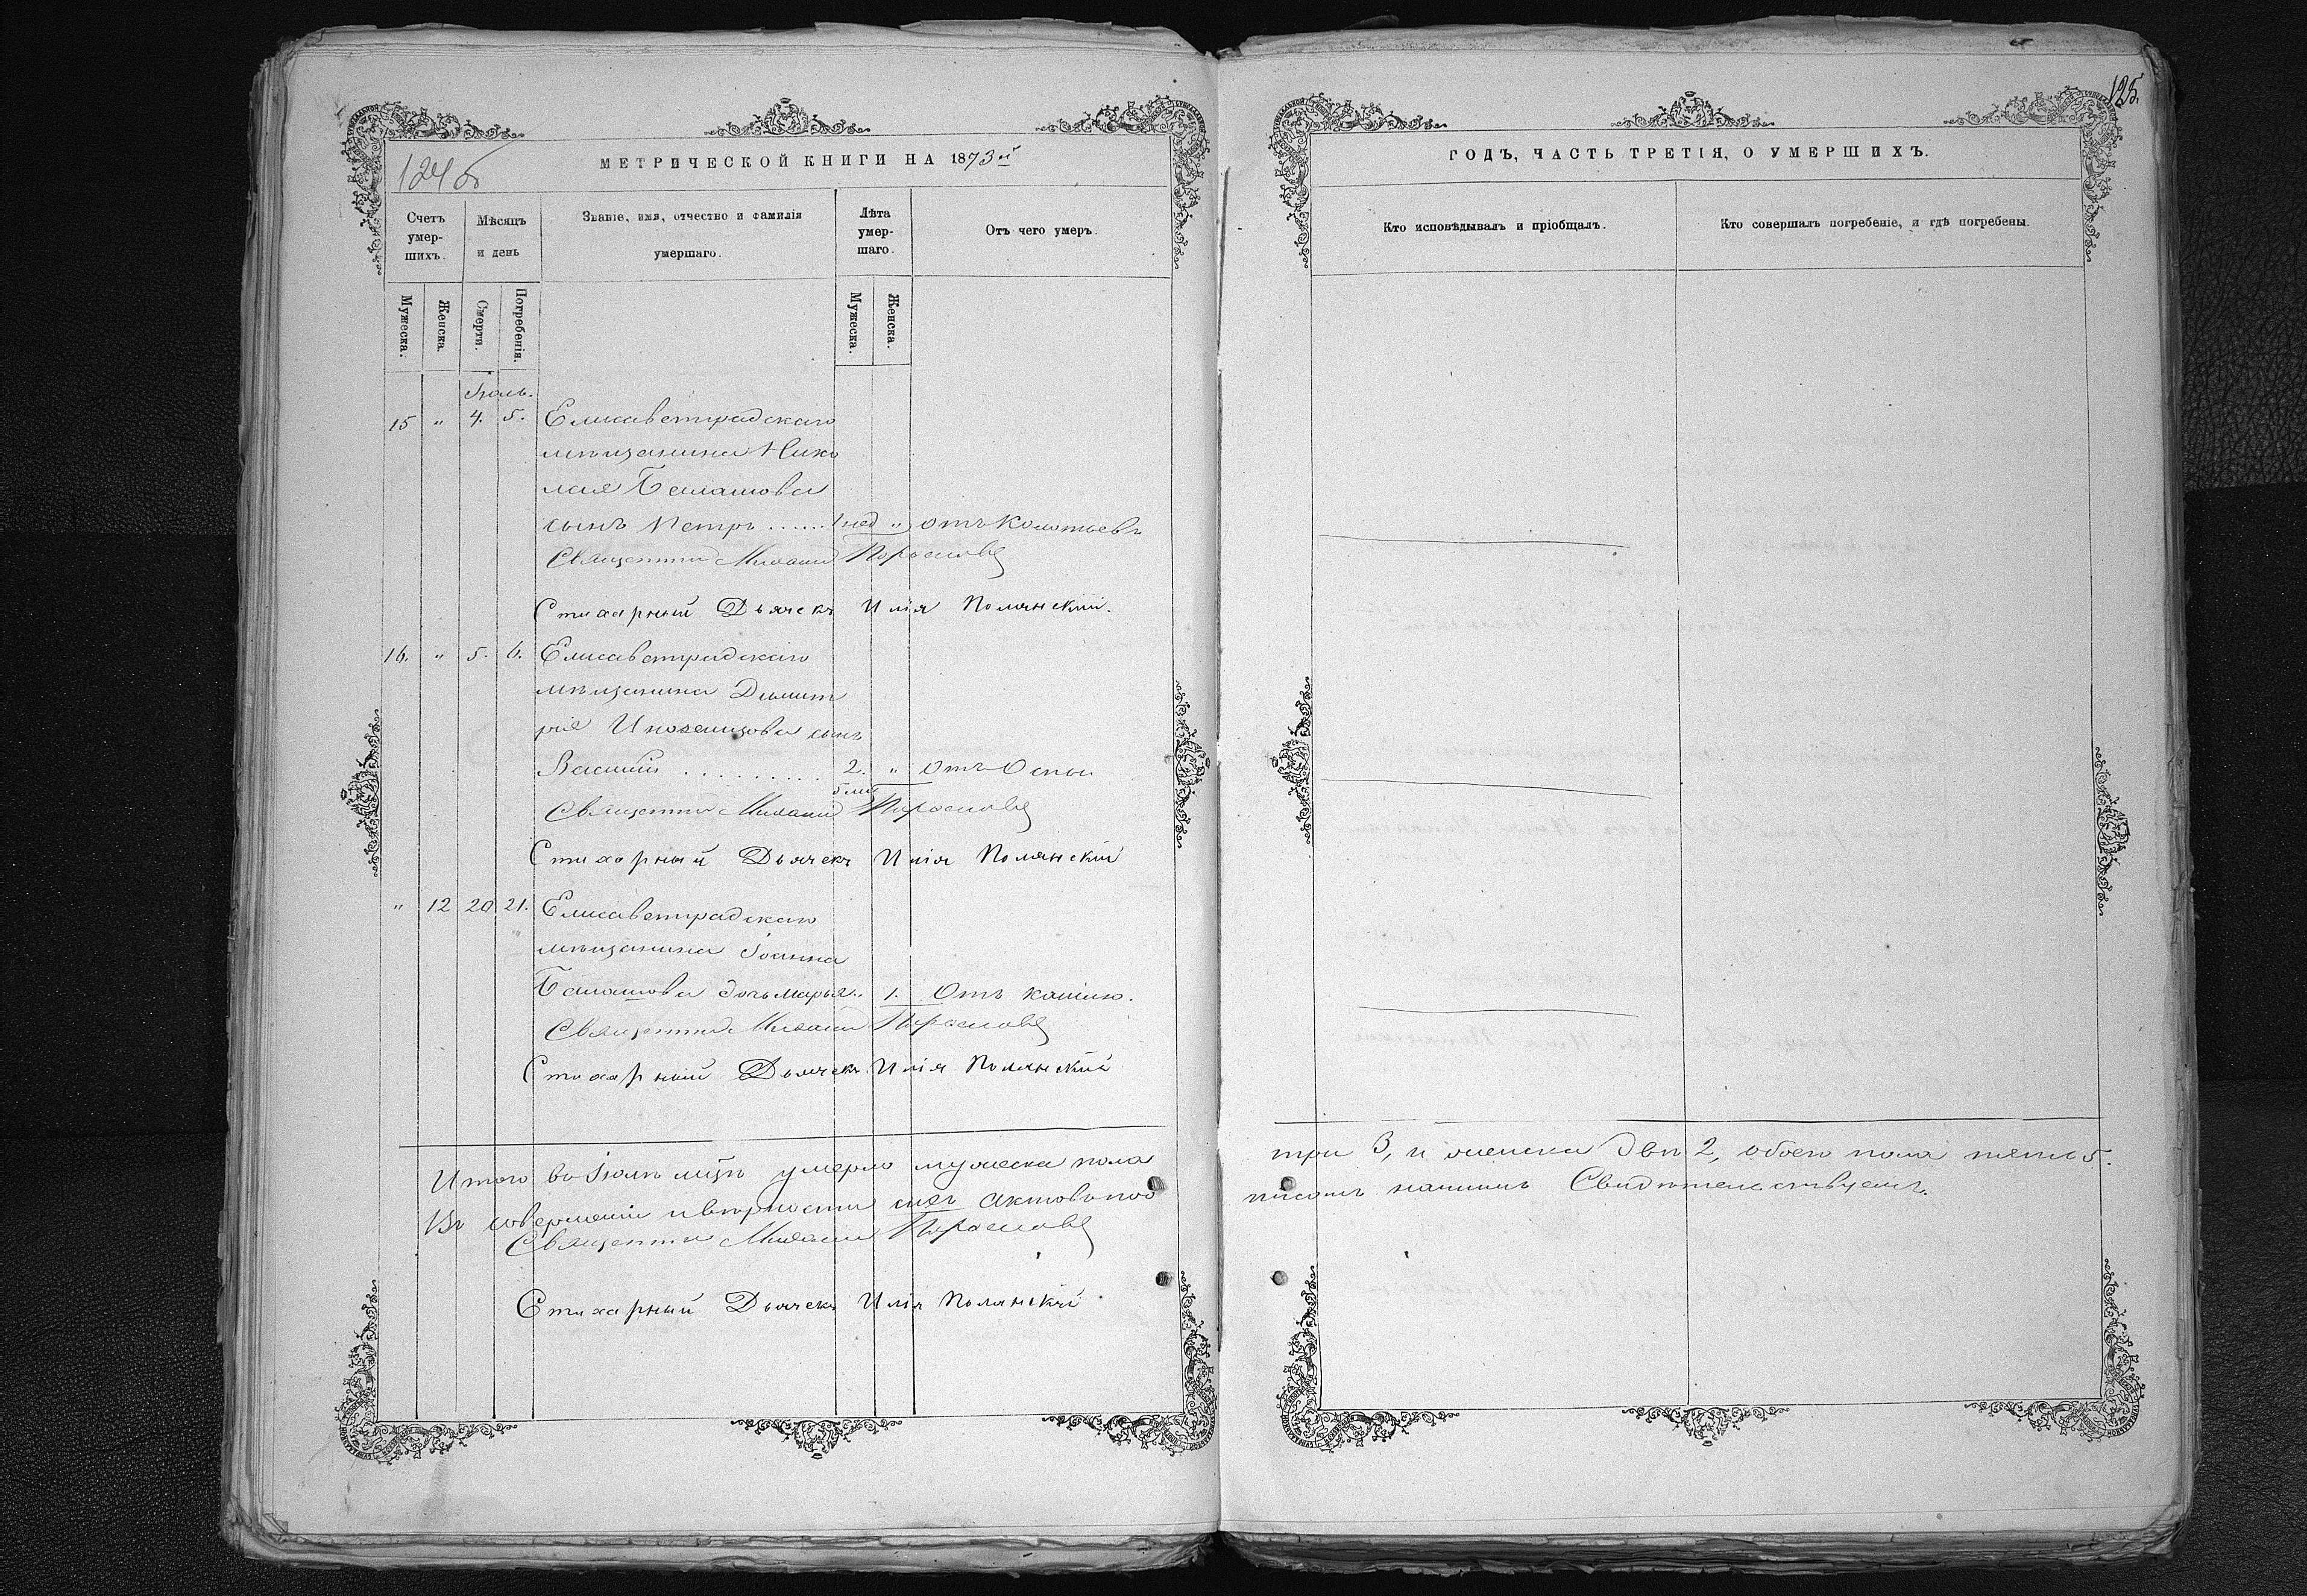 124 б
МЕТРИЧЕСКОЙ КНИГИ НА 1873й
Счетъ умер-шихъ.
Мѣсяцъ и день
Званіе, имя, отчество и фамилія умершаго.
Лѣта умер-шаго.
Отъ чего умеръ.
Мужеска.
Женска.
Смерти.
Погребенія.
Мужеска.
Женска.
Іюль.
15 " 4. 5. Елисаветградскаго
мѣщанина Нико
лая Балашова
сынъ Петръ ...... 1 нед " отъ Колотьевъ
Священникъ Михаилъ
Стихарный Дьячекъ Илія Полянскій.
16. " 5. 6. Елисаветградскаго
мѣщанина Димит
рія сынъ
Василій .......... 2. " отъ Оспы
Священникъ Михаилъ
Стихарный Дьячекъ Илія Полянскій
" 12 20 21. Елисаветградскаго
мѣщанина Іоанна
Балашова дочь Марья.. 1. Отъ кашлю.
Священникъ Михаилъ
Стихарный Дьячекъ Илія Полянскій
Итого во Іюлѣ мцѣ умерло мужеска пола
Въ совершеніи и вѣрности сихъ актовъ под
Священникъ Михаилъ
Стихарный Дьячекъ Илія Полянскій
125.
ГОДЪ, ЧАСТЬ ТРЕТІЯ, О УМЕРШИХЪ.
Кто исповѣдывалъ и пріобщалъ.
Кто совершалъ погребеніе, и гдѣ погребены.
три 3, и женска двѣ 2, обоего пола пять 5.
писомъ нашимъ Свидѣтельствуемъ.